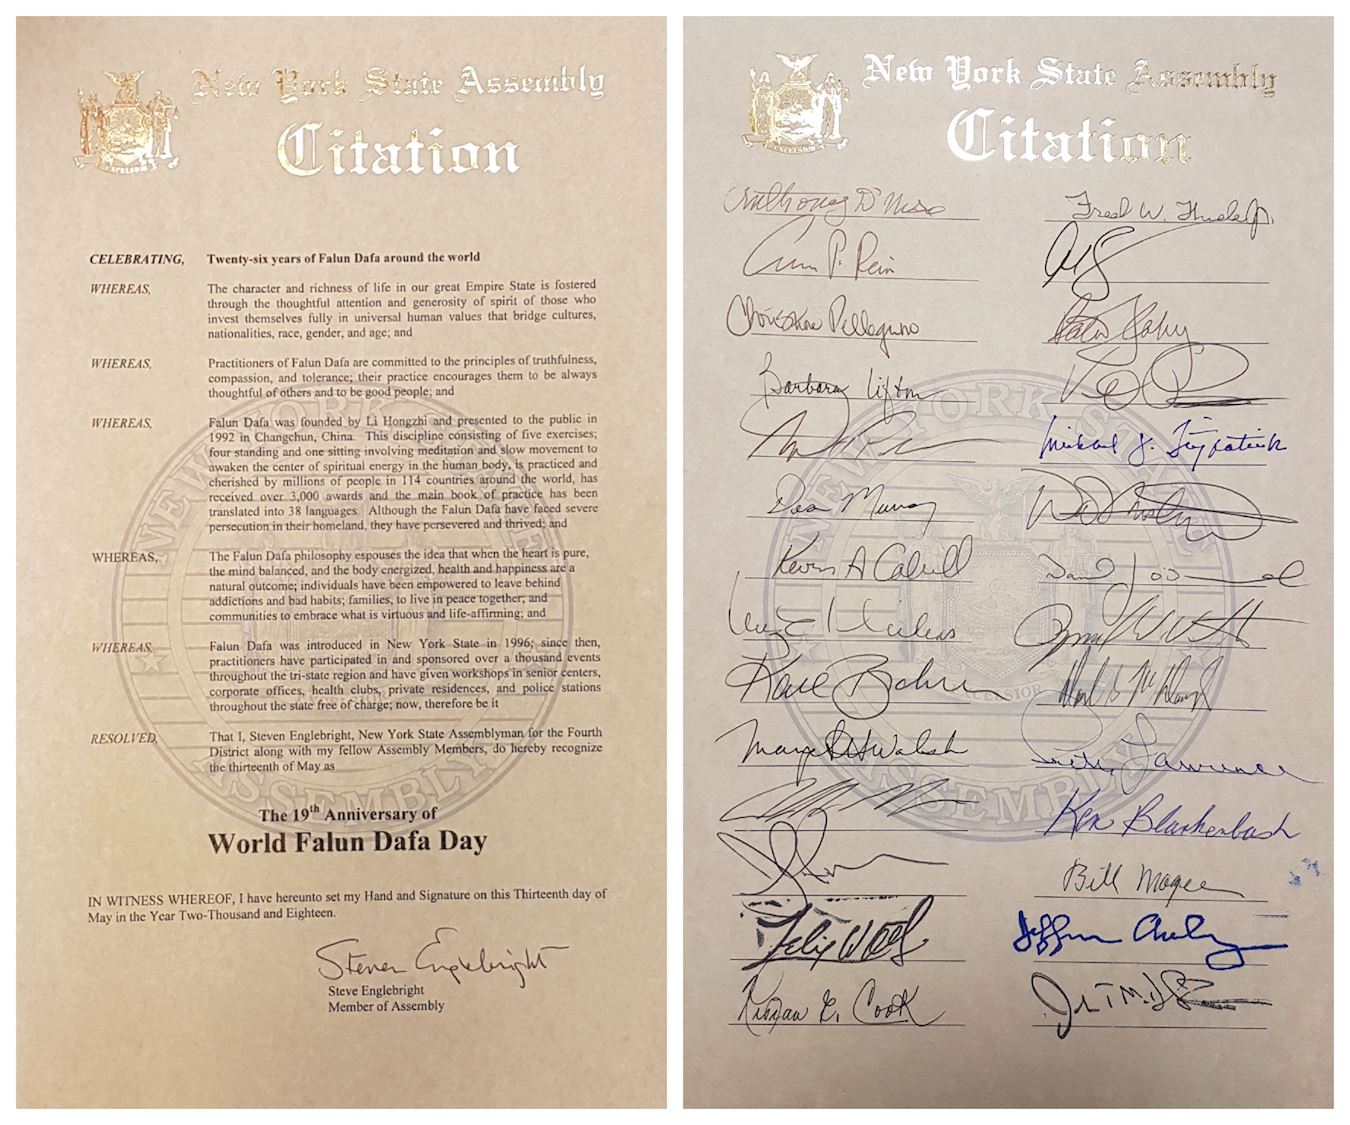 New York State Assembly
Citation
EXCELSIOR
CELEBRATING, Twenty-six years of Falun Dafa around the world
WHEREAS, The character and richness of life in our great Empire State is fostered
through the thoughtful attention and generosity of spirit of those who
invest themselves fully in universal human values that bridge cultures,
nationalities, race, gender, and age; and
WHEREAS, Practitioners of Falun Dafa are committed to the principles of truthfulness,
compassion, and tolerance; their practice encourages them to be always
thoughtful of others and to be good people; and
WHEREAS, Falun Dafa was founded by Li Hongzhi and presented to the public in
1992 in Changchun, China. This discipline consisting of five exercises;
four standing and one sitting involving meditation and slow movement to
awaken the center of spiritual energy in the human body, is practiced and
cherished by millions of people in 114 countries around the world, has
received over 3,000 awards and the main book of practice has been
translated into 38 languages. Although the Falun Dafa have faced severe
persecution in their homeland, they have persevered and thrived; and
WHEREAS, The Falun Dafa philosophy espouses the idea that when the heart is pure,
the mind balanced, and the body energized, health and happiness are a
natural outcome; individuals have been empowered to leave behind
addictions and bad habits; families, to live in peace together; and
communities to embrace what is virtuous and life-affirming; and
WHEREAS, Falun Dafa was introduced in New York State in 1996; since then,
practitioners have participated in and sponsored over a thousand events
throughout the tri-state region and have given workshops in senior centers,
corporate offices, health clubs, private residences, and police stations
throughout the state free of charge; now, therefore be it
RESOLVED, That I, Steven Englebright, New York State Assemblyman for the Fourth
District along with my fellow Assembly Members, do hereby recognize
the thirteenth of May as
The 19th Anniversary of
World Falun Dafa Day
IN WITNESS WHEREOF, I have hereunto set my Hand and Signature on this Thirteenth day of
May in the Year Two-Thousand and Eighteen.
Steven Englebright
Steve Englebright
Member of Assembly
NEW YORK STATE
ASSEMBLY
New York State Assembly
Citation
EXCELSIOR
Anthony D'
Fred W.
Pellegrino
Barbara Lifton
Michael J. Fitzpatrick
Dean Murray
Kevin A Cahill
Walsh
Lawrence
Ken Blankenbush
Bill Magee
Felix
Cook
NEW YORK STATE
EXCELSIOR
ASSEMBLY